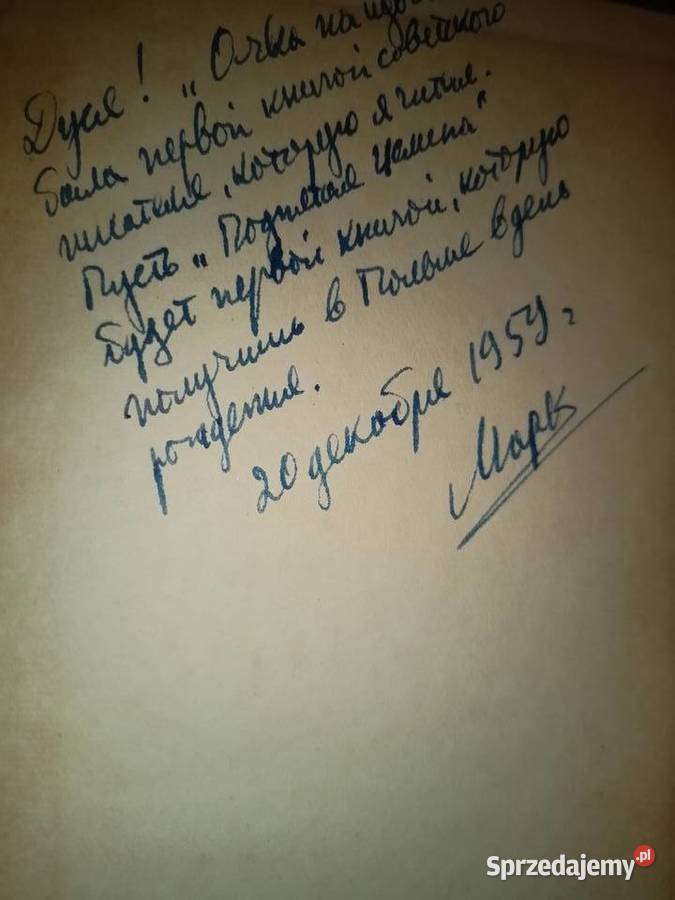 Дуся! "Очва на
была первой книгой советского
писателя, которую я читал.
Пусть "Поднятая целина"
будет первой книгой, которую
получишь в Польше в день
рождения.
20 декабря 1959 г
Марк
Sprzedajemy.pl